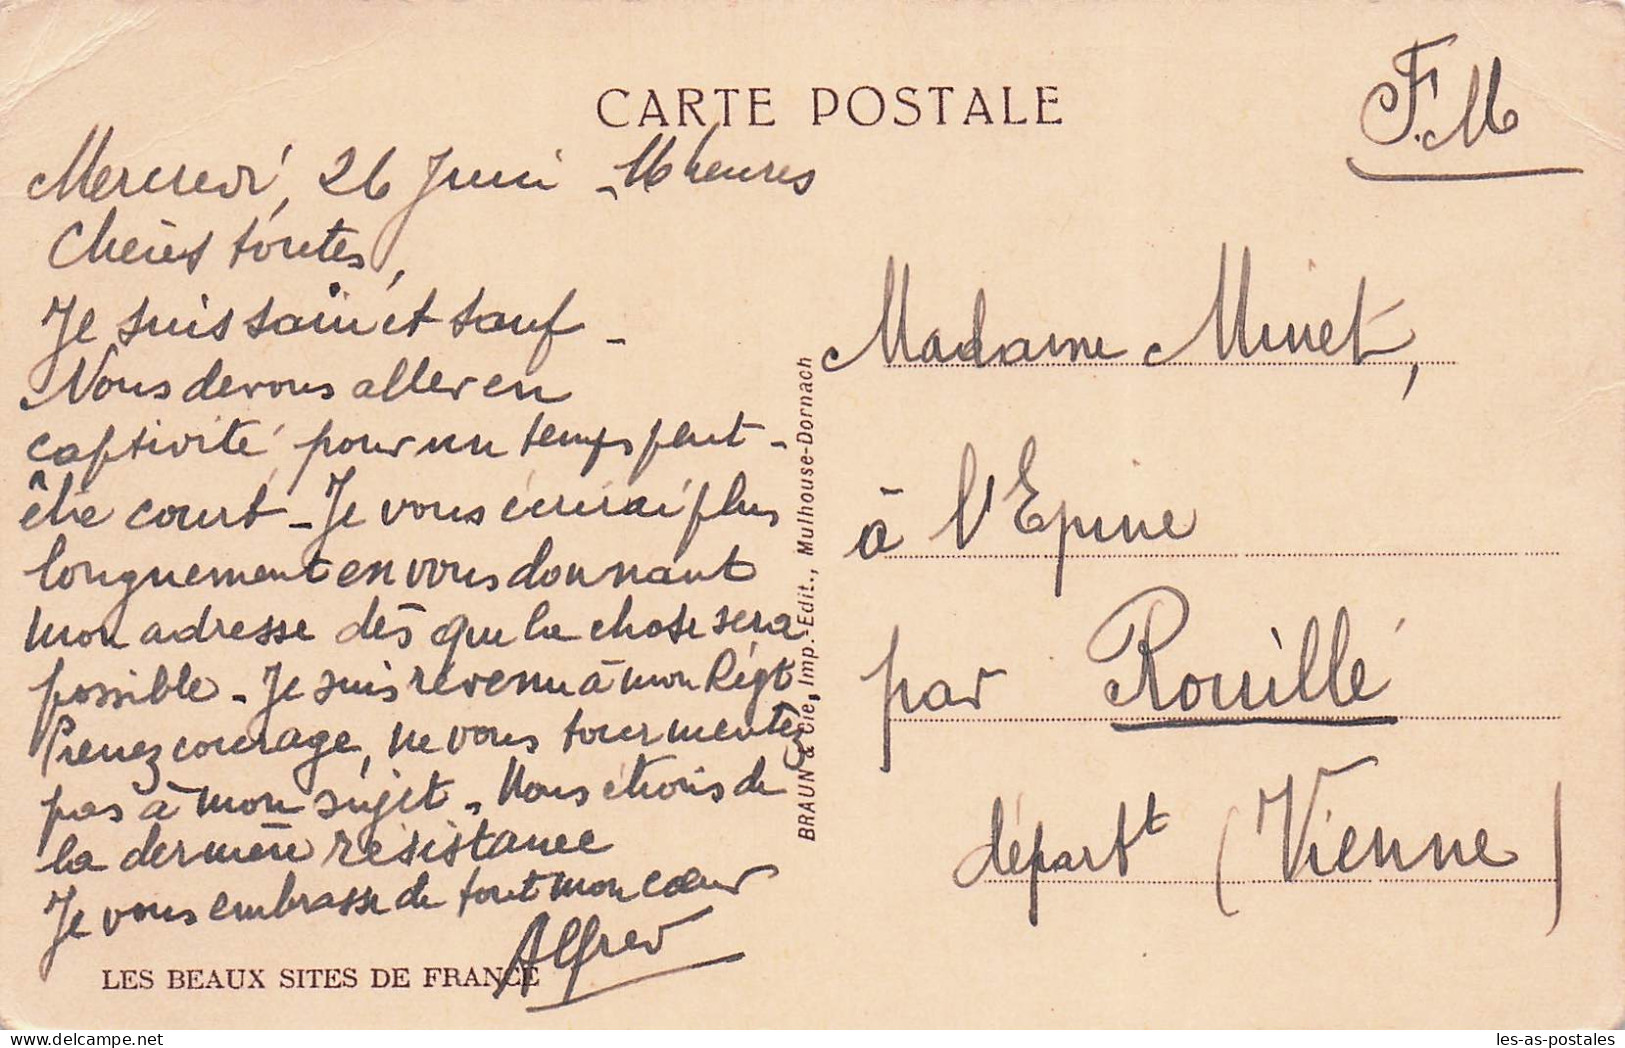 CARTE POSTALE
F.M
Mercredi, 26 Juin - 16 heures
Chères toutes,
Je suis sain et sauf -
Nous devons aller en
captivité pour un temps peut-
être court - Je vous écrirai plus
longuement en vous donnant
mon adresse dès que la chose sera
possible - Je suis revenu à mon Régt
Prenez courage, ne vous tourmentez
pas à mon sujet - Nous étions de
la dernière résistance
Je vous embrasse de tout mon cœur
Alfred
LES BEAUX SITES DE FRANCE
BRAUN & Cie, Imp.-Edit., Mulhouse-Dornach
Madame Minet,
à l'Epine
par Rouillé
départt (Vienne)
les-as-postales